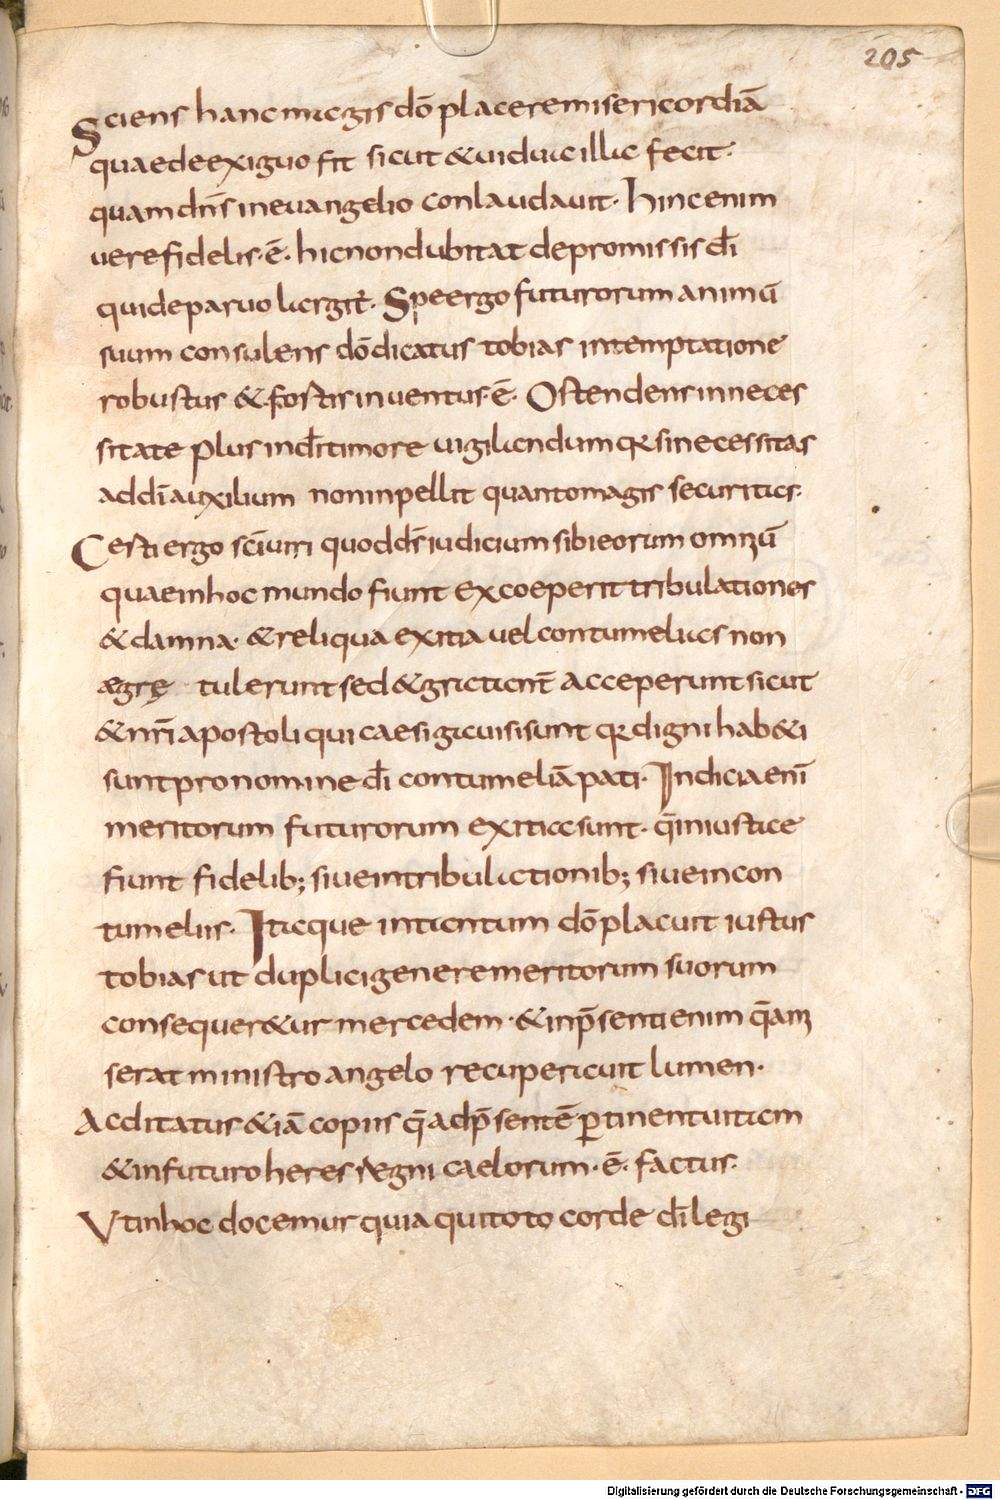 205
Sciens hanc magis dō placere misericordiā
quae de exiguo fit sicut & uidua illa fecit·
quam dn̄s in evangelio conlaudauit· hinc enim
vere fidelis·ē· hic non dubitat de promissis dī
qui de paruo largit̄· Spe ergo futurorum animū
suum consulens dō dicatus tobias in temptatione
robustus & fostis inuentus·ē· Ostendens in neces
sitate plus in dī timore uigilandum qr si necessitas
ad dī auxilium non inpellit quanto magis securitas·
Cesti ergo sc̄i uiri quod ds̄ iudicium sibi eorum omnū
quae in hoc mundo fiunt ex coeperit tribulationes
& damna· & reliqua exitia uel contumelias non
ægrę tulerunt sed & gratient̄ acceperunt sicut
& nr̄i apostoli qui caesi gauisi sunt qr digni hab&i
sunt pro nomine dī contumeliā pati· Indicia enī
meritorum futurorum exitia sunt· q̄ iniustae
fiunt fidelib; siue in tribulationib; siue in con
tumeliis· Itaque in tantum dō placuit iustus
tobias ut duplici genere meritorum suorum
consequer&ur mercedem·& in p̄senti enim q̄ am
serat ministro angelo recuperauit lumen·
Acditatus & iā copiis q̄ ad p̄sentē ꝑtinent uitam
& in futuro heres regni caelorum·ē· factus·
Vt in hoc docemur quia qui toto corde dī legi
Digitalisierung gefördert durch die Deutsche Forschungsgemeinschaft - DFG